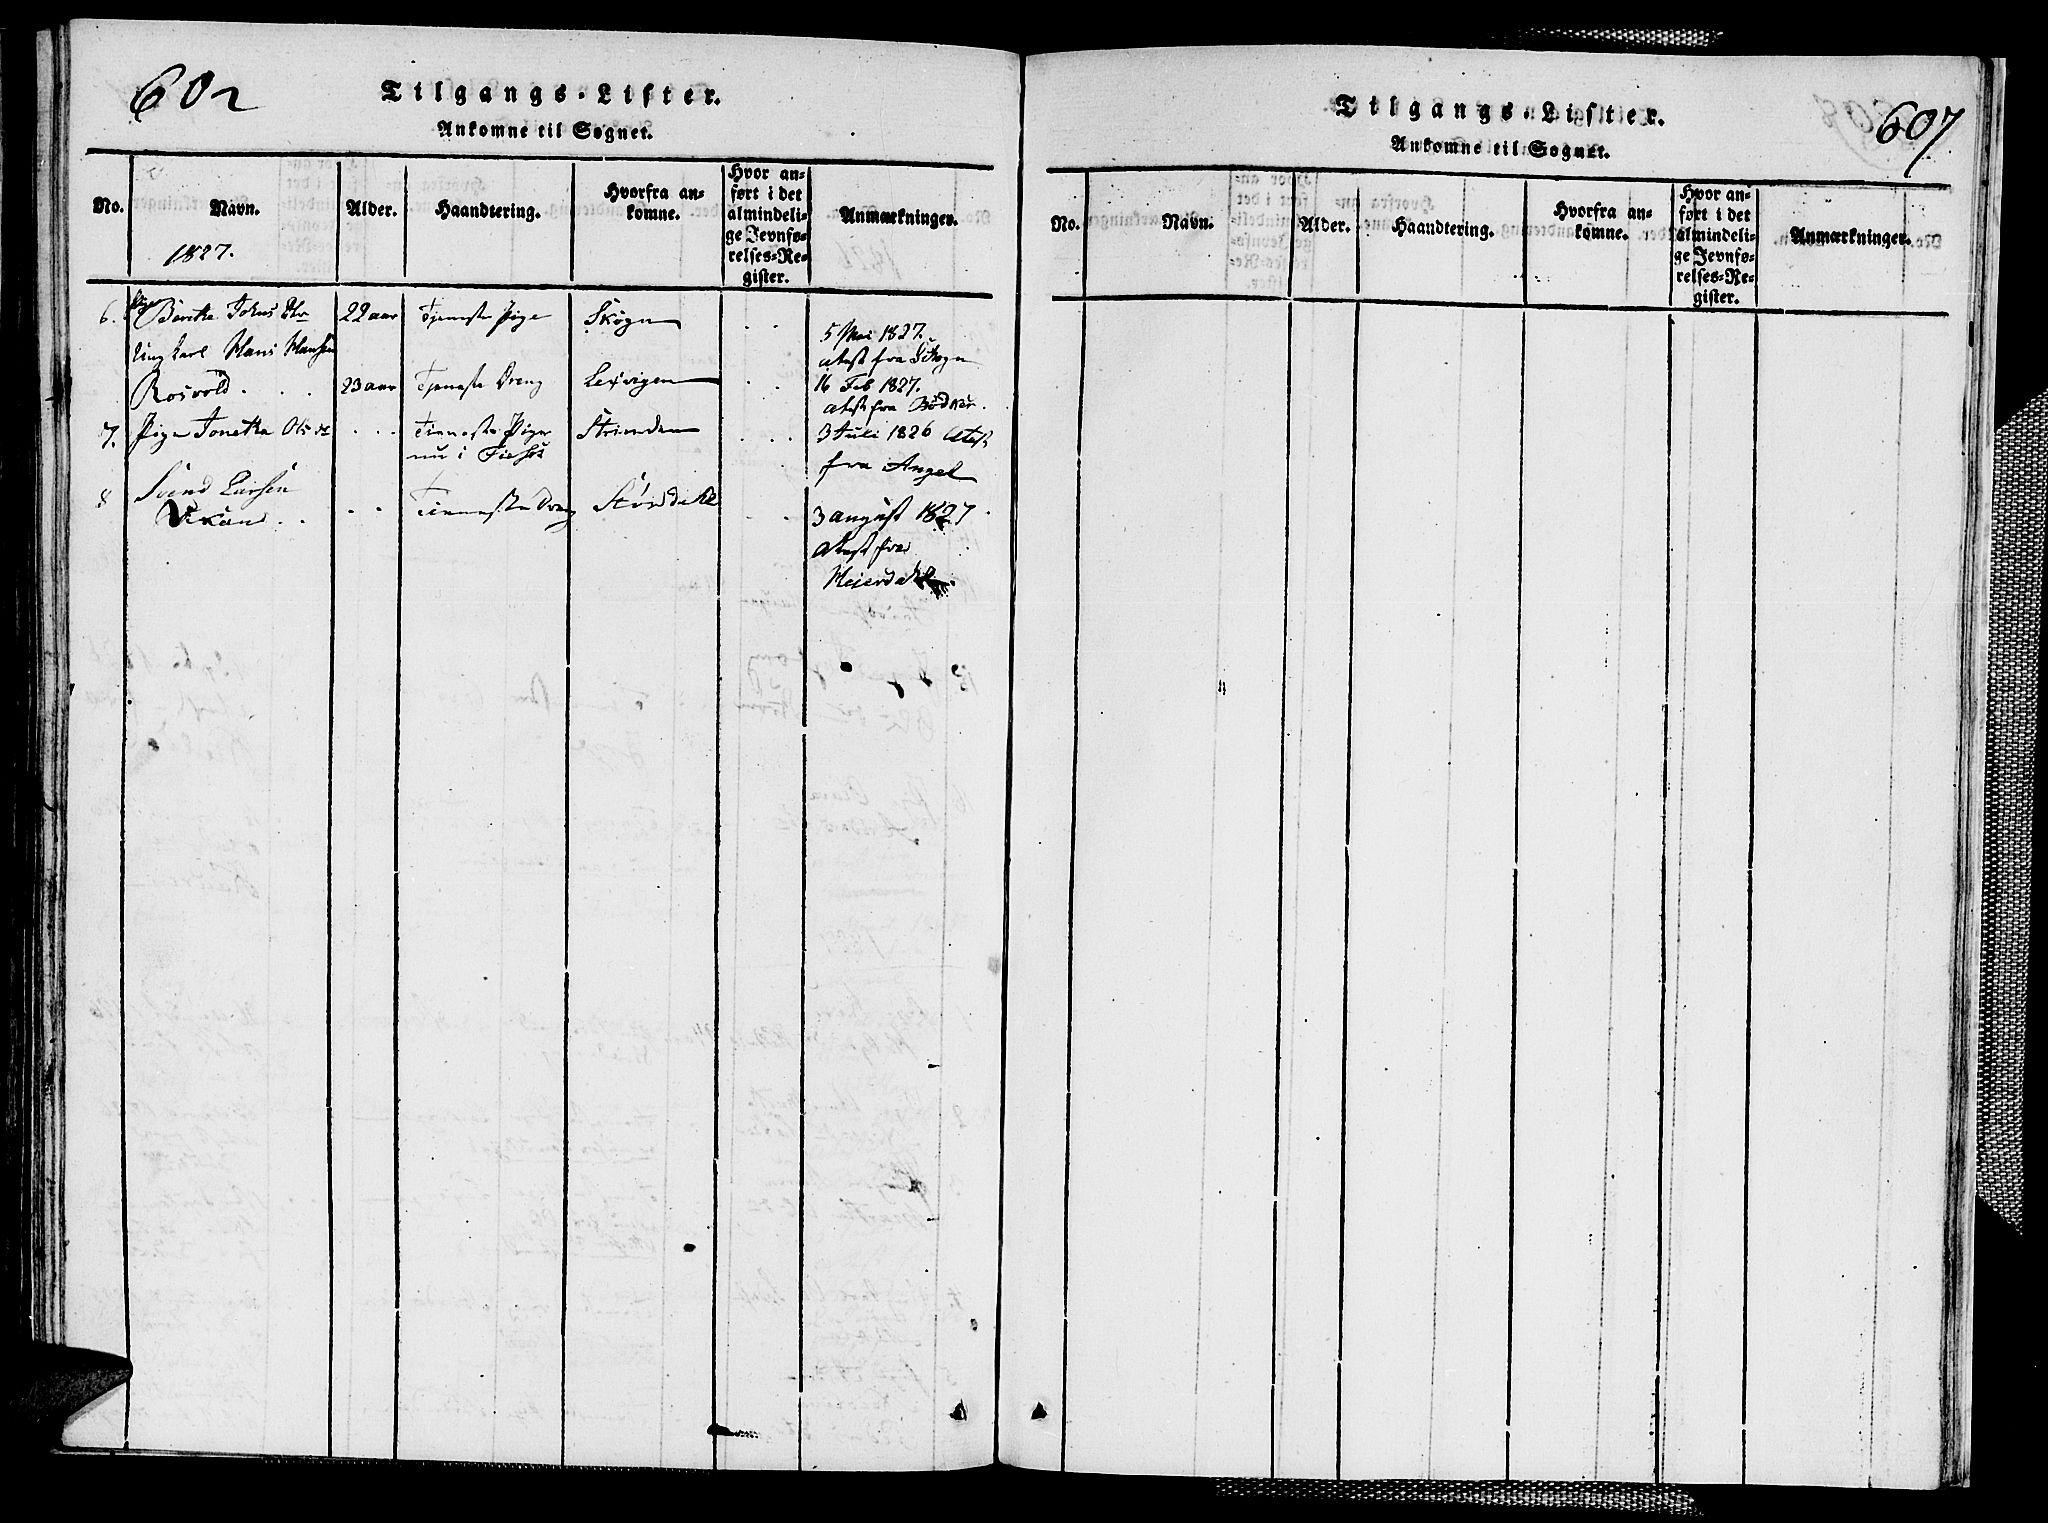 602
Tilgangs-Lister.
Ankomne til Sognet.
No.
Navn.
Alder.
Haandtering.
Hvorfra an-
komne.
Hvor an-
ført i det
almindeli-
ge Jevnfø-
relses-Re-
gister.
Anmærkninger.
1827.
6. Pige Beretha Johns Dtr 22 aar Tjeneste Pige Skogn 5 Mai 1827.
Ung Karl Hans Hansen Atest fra Skogn
Rosvold 23 aar Tjeneste Dreng Lexvigen 16 Feb 1827.
Atest fra Bødker.
7. Pige Tieneste Pige Strinden 3 Juli 1826 Atest
nu i fra Angel
8 Svend Larsen Tieneste Dreng Størdahl 3 august 1827
Atest fra
Meierdahl
607
Tilgangs-Lister.
Ankomne til Sognet.
No.
Navn.
Alder.
Haandtering.
Hvorfra an-
komne.
Hvor an-
ført i det
almindeli-
ge Jevnfø-
relses-Re-
gister.
Anmærkninger.